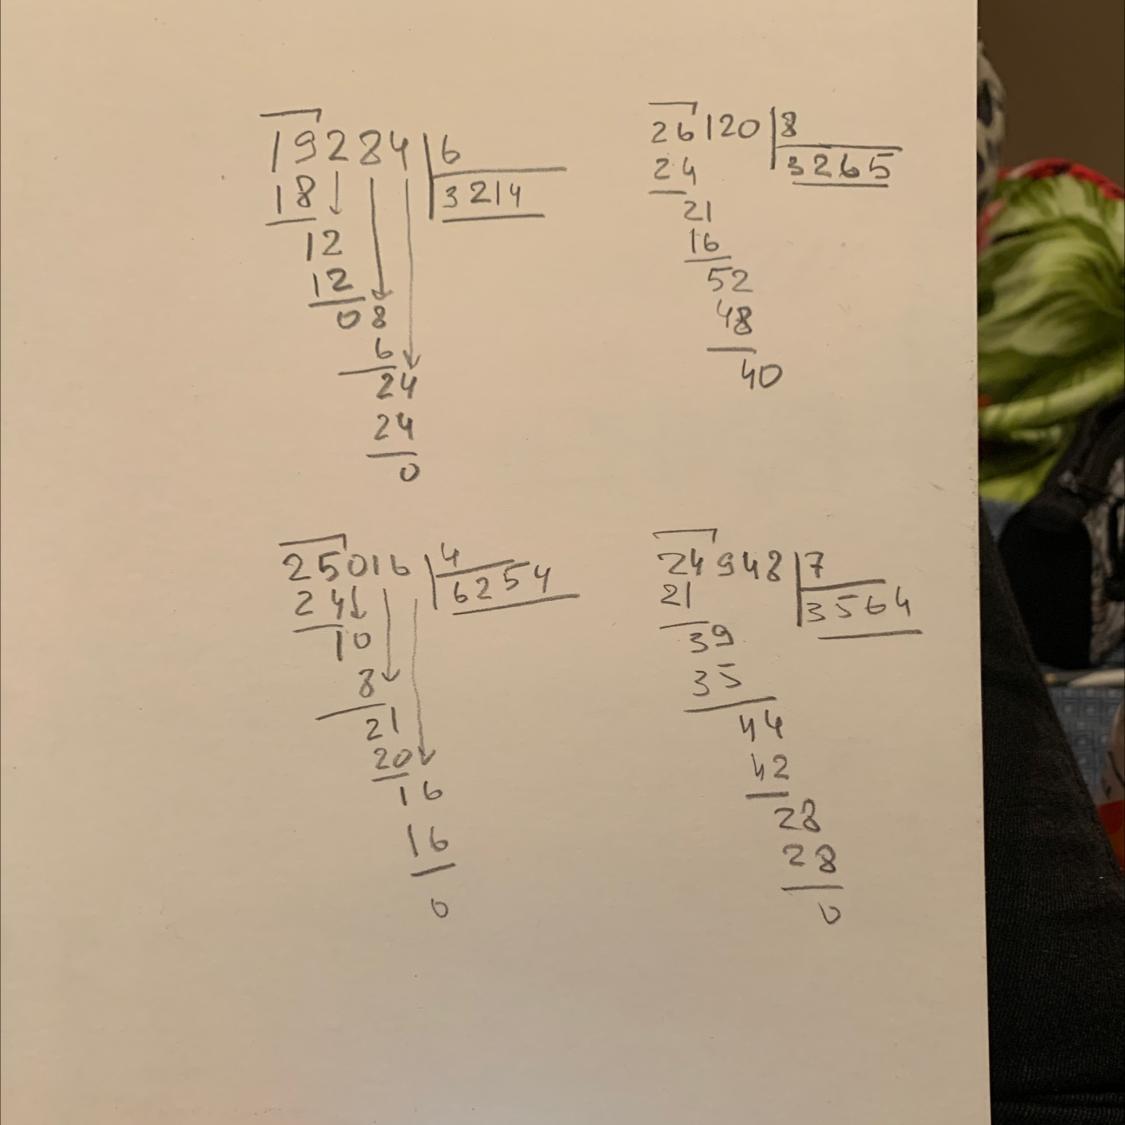 19284 6
18 3214
12
12
08
6
24
24
0
26120 8
24 3265
21
16
52
48
40
25016 4
24 6254
10
8
21
20
16
16
0
24948 7
21 3564
39
35
44
42
28
28
0